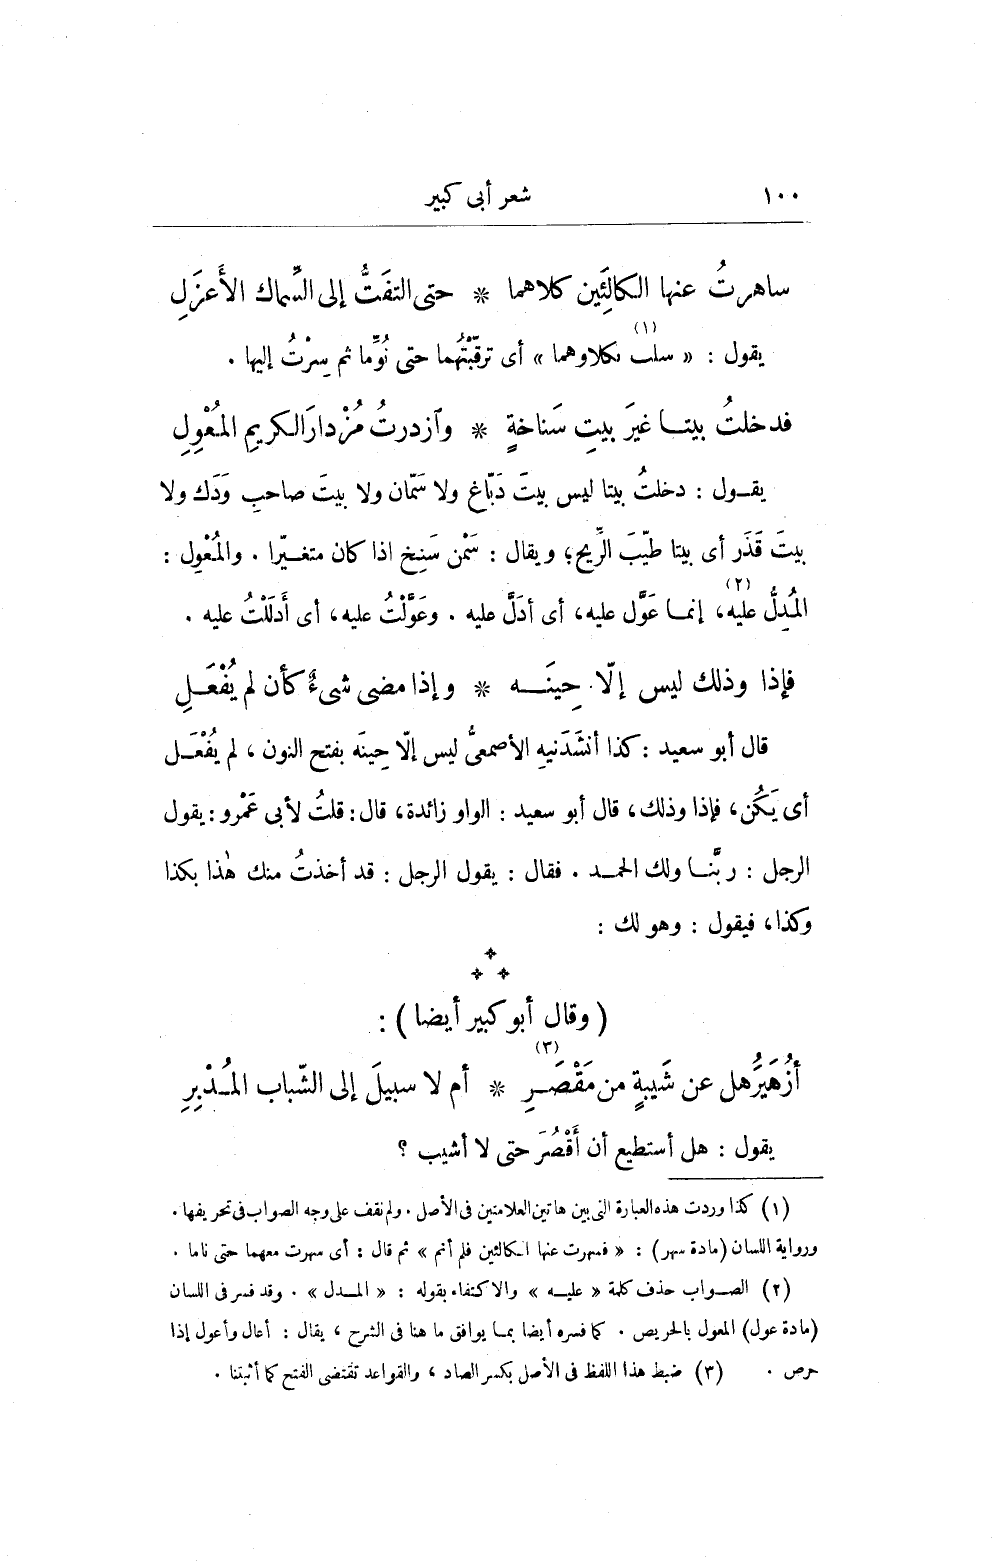 ١٠٠ شعر أبى كبير
ساهرتُ عنها الكالِئَين كلاهما * حتى التفَتُّ إلى السِّماك الأَعزَلِ
(١)
يقول : « سلب بكلاوهما » أى ترقّبْتُهما حتى نُوِّما ثم سِرْتُ إليها .
فدخلتُ بيتـا غيرَ بيتِ سَناخةٍ * وٱزدرتُ مُزْدارَ الكريمِ المُعْوِلِ
يقـول : دخلتُ بيتا ليس بيتَ دَبّاغ ولا سَمّان ولا بيتَ صاحبِ وَدَك ولا
بيتَ قَذَر أى بيتا طيِّبَ الرِّيح؛ ويقال : سَمْن سَنِخ اذا كان متغـيّرا . والمُعْوِل :
(٢)
المُدِلُّ عليه، إنمـا عَوَّل عليه، أى أدَلَّ عليه . وعَوَّلْتُ عليه، أى أَدلَلْتُ عليه .
فإذا وذلك ليس إلّا حِينَــه * وإذا مضى شىءٌ كأن لم يُفْعَــلِ
قال أبو سعيد : كذا أنشَدَنيه الأصمعىُّ ليس إلّا حِينَه بفتح النون ، لم يُفْعَــل
أى يَكُن، فإذا وذلك، قال أبو سعيد : الواو زائدة، قال : قلتُ لأبى عَمْرو : يقول
الرجل : ربَّنـا ولك الحمـد . فقال : يقول الرجل : قد أخذتُ منك هٰذا بكذا
وكذا، فيقول : وهو لك :
(وقال أبو كبير أيضا) :
(٣)
أزُهَيرُ هل عن شَيبةٍ من مَقْصَــرِ * أم لا سبيلَ إلى الشّباب المُـدْبِرِ
يقول : هل أستطيع أن أَقْصُرَ حتى لا أشيب ؟
(١) كذا وردت هذه العبارة التى بين هاتين العلامتين فى الأصل . ولم نقف على وجه الصواب فى تحريفها .
ورواية اللسان (مادة سهر) : « فسهرت عنها الكالئين فلم أنم » ثم قال : أى سهرت معهما حتى ناما .
(٢) الصـواب حذف كلمة « عليـه » والاكتفاء بقوله : « المـدل » . وقد فسر فى اللسان
(مادة عول) المعول بالحريص . كما فسره أيضا بمـا يوافق ما هنا فى الشرح ، يقال : أعال وأعول إذا
حرص . (٣) ضبط هذا اللفظ فى الأصل بكسر الصاد ، والقواعد تقتضى الفتح كما أثبتنا .